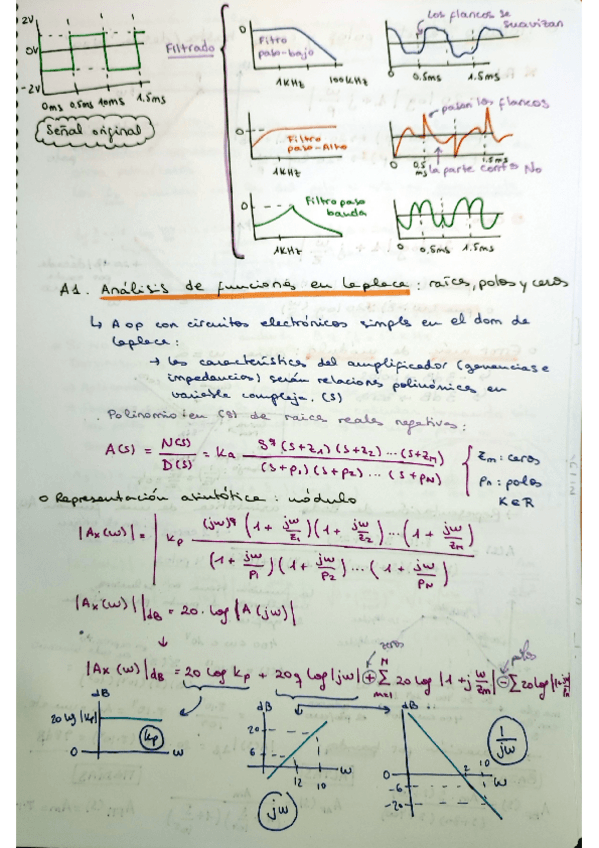 2V
0V
-2V
0ms 0,5ms 10ms 1.5ms
Señal original
Filtrado
0
Filtro
paso-bajo
1KHz 100KHz
Los flancos se
suavizan
0 0.5ms 1.5ms
0
Filtro
paso-Alto
1KHz
pasan los flancos
0 0,5 ms 1.5ms
la parte contns No
0
Filtro paso
banda
1KHz
0 0,5ms 1.5ms
A1. Análisis de funciones en Laplace: raíces, polos y ceros
↳ A op con circuitos electrónicos simple en el dom de
Laplace:
→ Las características del amplificador (ganancias e
impedancias) serán relaciones polinómicas en
variable compleja. (S)
. Polinomio en (S) de raíces reales negativas:
A(s) = N(s) / D(s) = Ka S^q (s+z1)(s+z2) ... (s+zm) / (s+p1)(s+p2) ... (s+pN)
zm: ceros
pn: polos
K∈R
o Representación asintótica: módulo
|Ax(w)| = | Kp (jw)^q (1 + jw/z1)(1 + jw/z2) ... (1 + jw/zm) / (1 + jw/p1)(1 + jw/p2) ... (1 + jw/pN) |
|Ax(w)|dB = 20 · log |A(jw)|
↓
ceros
polos
|Ax(w)|dB = 20 log Kp + 20q log|jw| + Σ 20 log |1 + j w/zm| - Σ 20 log |1 + j w/pn|
N
m=1
dB
20 log |Kp|
0
Kp
w
dB
20
6
12 10
w
jw
dB
0
-6
-20
2 10
w
1/jw